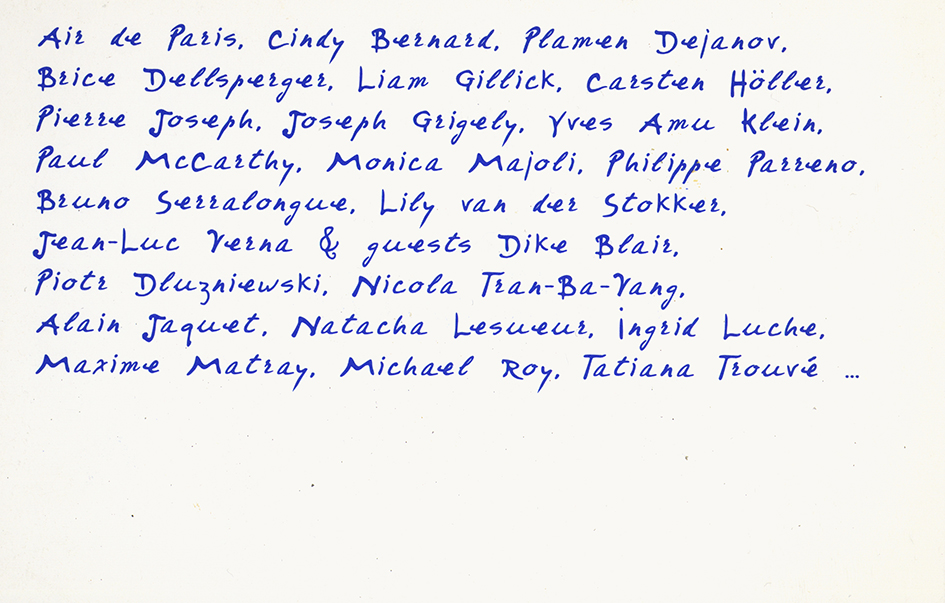 Air de Paris, Cindy Bernard, Plamen Dejanov,
Brice Dellsperger, Liam Gillick, Carsten Höller,
Pierre Joseph, Joseph Grigely, Yves Amu Klein,
Paul McCarthy, Monica Majoli, Philippe Parreno,
Bruno Serralongue, Lily van der Stokker,
Jean-Luc Verna & guests Dike Blair,
Piotr Dluzniewski, Nicola Tran-Ba-Vang,
Alain Jaquet, Natacha Lesueur, Ingrid Luche,
Maxime Matray, Michael Roy, Tatiana Trouvé ...